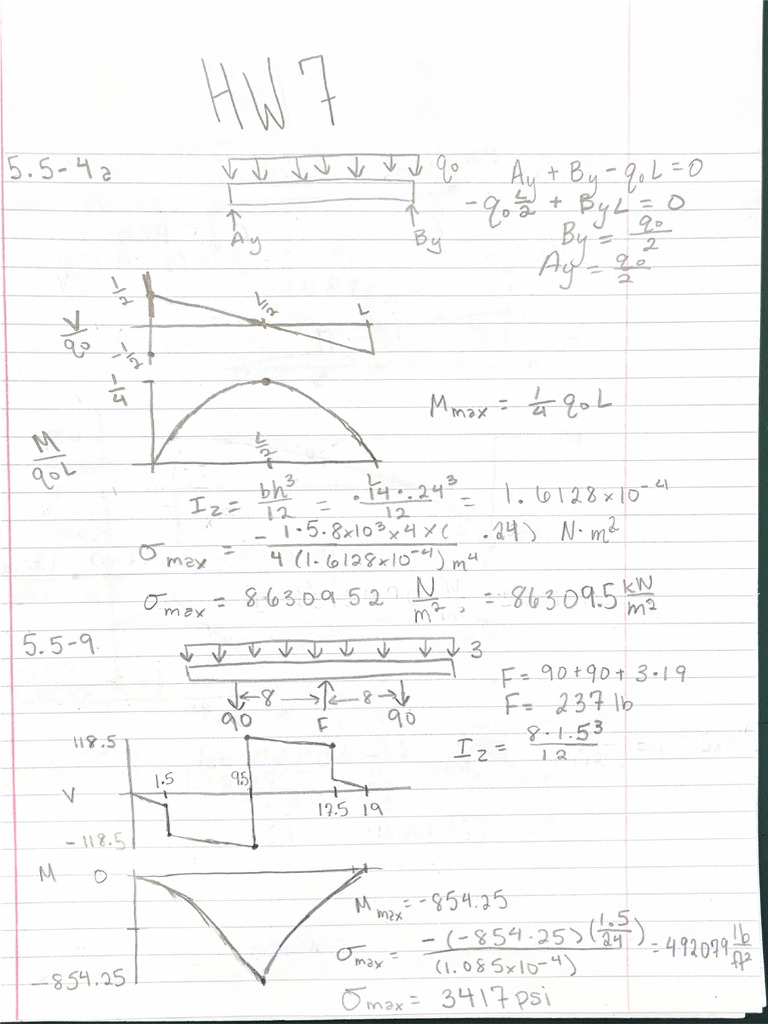 HW 7
5.5-4a
q₀
Ay
By
Ay + By - q₀L = 0
-q₀ L/2 + ByL = 0
By = q₀/2
Ay = q₀/2
V/q₀
1/2
L/2
L
-1/2
M/q₀L
1/4
L/2
L
Mmax = 1/4 q₀L
Iz = bh³/12 = .14·.24³/12 = 1.6128×10⁻⁴
σmax = -1·5.8×10³×4×( .24) N·m² / 4(1.6128×10⁻⁴) m⁴
σmax = 8630952 N/m², = 86309.5 kN/m²
5.5-9
3
90
8
F
8
90
F = 90+90+3·19
F = 237 lb
Iz = 8·1.5³/12
V
118.5
1.5
9.5
17.5
19
-118.5
M
0
-854.25
Mmax = -854.25
σmax = -(-854.25)(1.5/24)/(1.085×10⁻⁴) = 492079 lb/ft²
σmax = 3417 psi